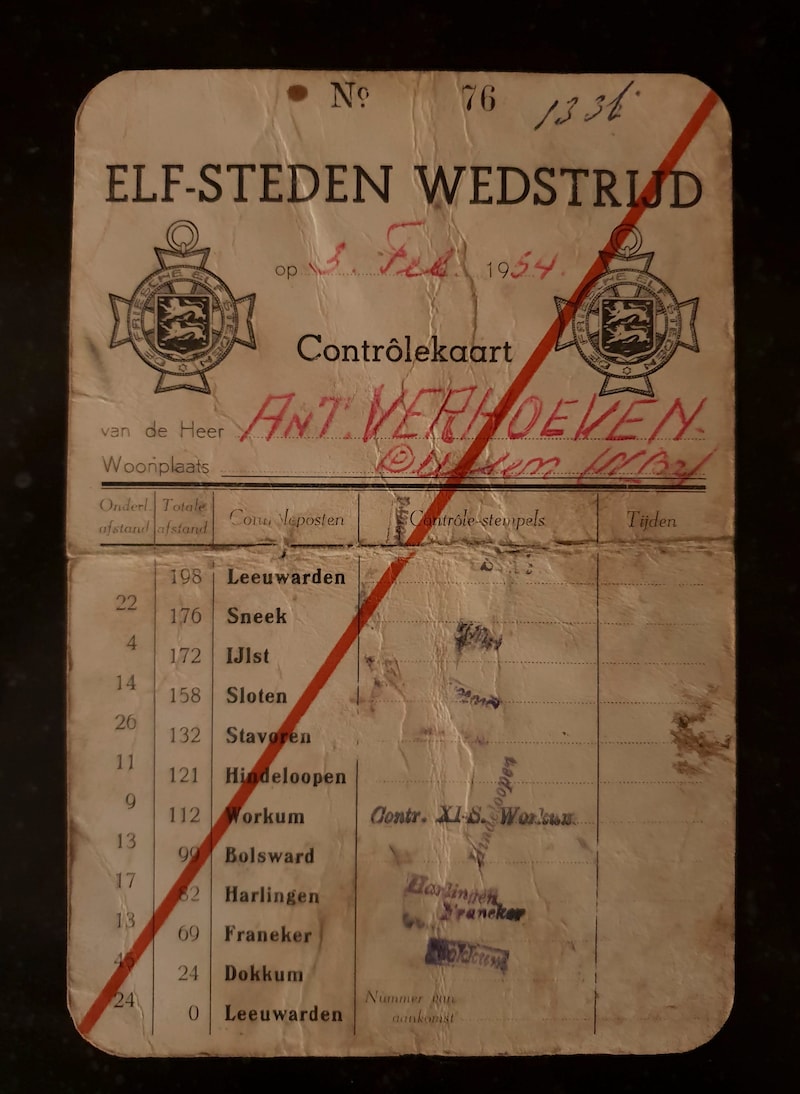 Nº 76 1336
ELF-STEDEN WEDSTRIJD
op 3. Feb. 1954.
DE FRIESCHE ELF STEDEN
DE FRIESCHE ELF STEDEN
Contrôlekaart
van de Heer ANT. VERHOEVEN.
Woonplaats
Onderl. afstand Totale afstand Contrôleposten Contrôle-stempels Tijden
198 Leeuwarden
22
176 Sneek
4
172 IJlst
14
158 Sloten
26
132 Stavoren
11
121 Hindeloopen
9
112 Workum Contr. XI-S. Workum
Hindeloopen
13
99 Bolsward
17
82 Harlingen Harlingen
13
Franeker
69 Franeker
45
24 Dokkum Dokkum
24
0 Leeuwarden Nummer van aankomst